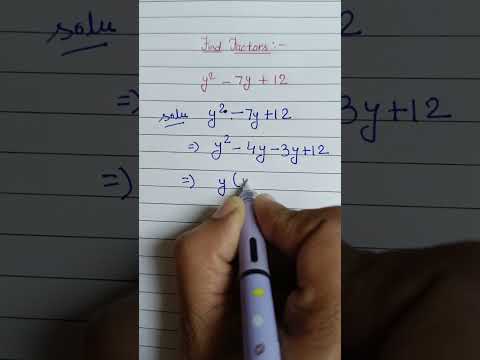 Find Factors:-
y² - 7y + 12
solu y² - 7y + 12
=) y² - 4y - 3y + 12
=) y (
solu
=)
3y + 12
=)